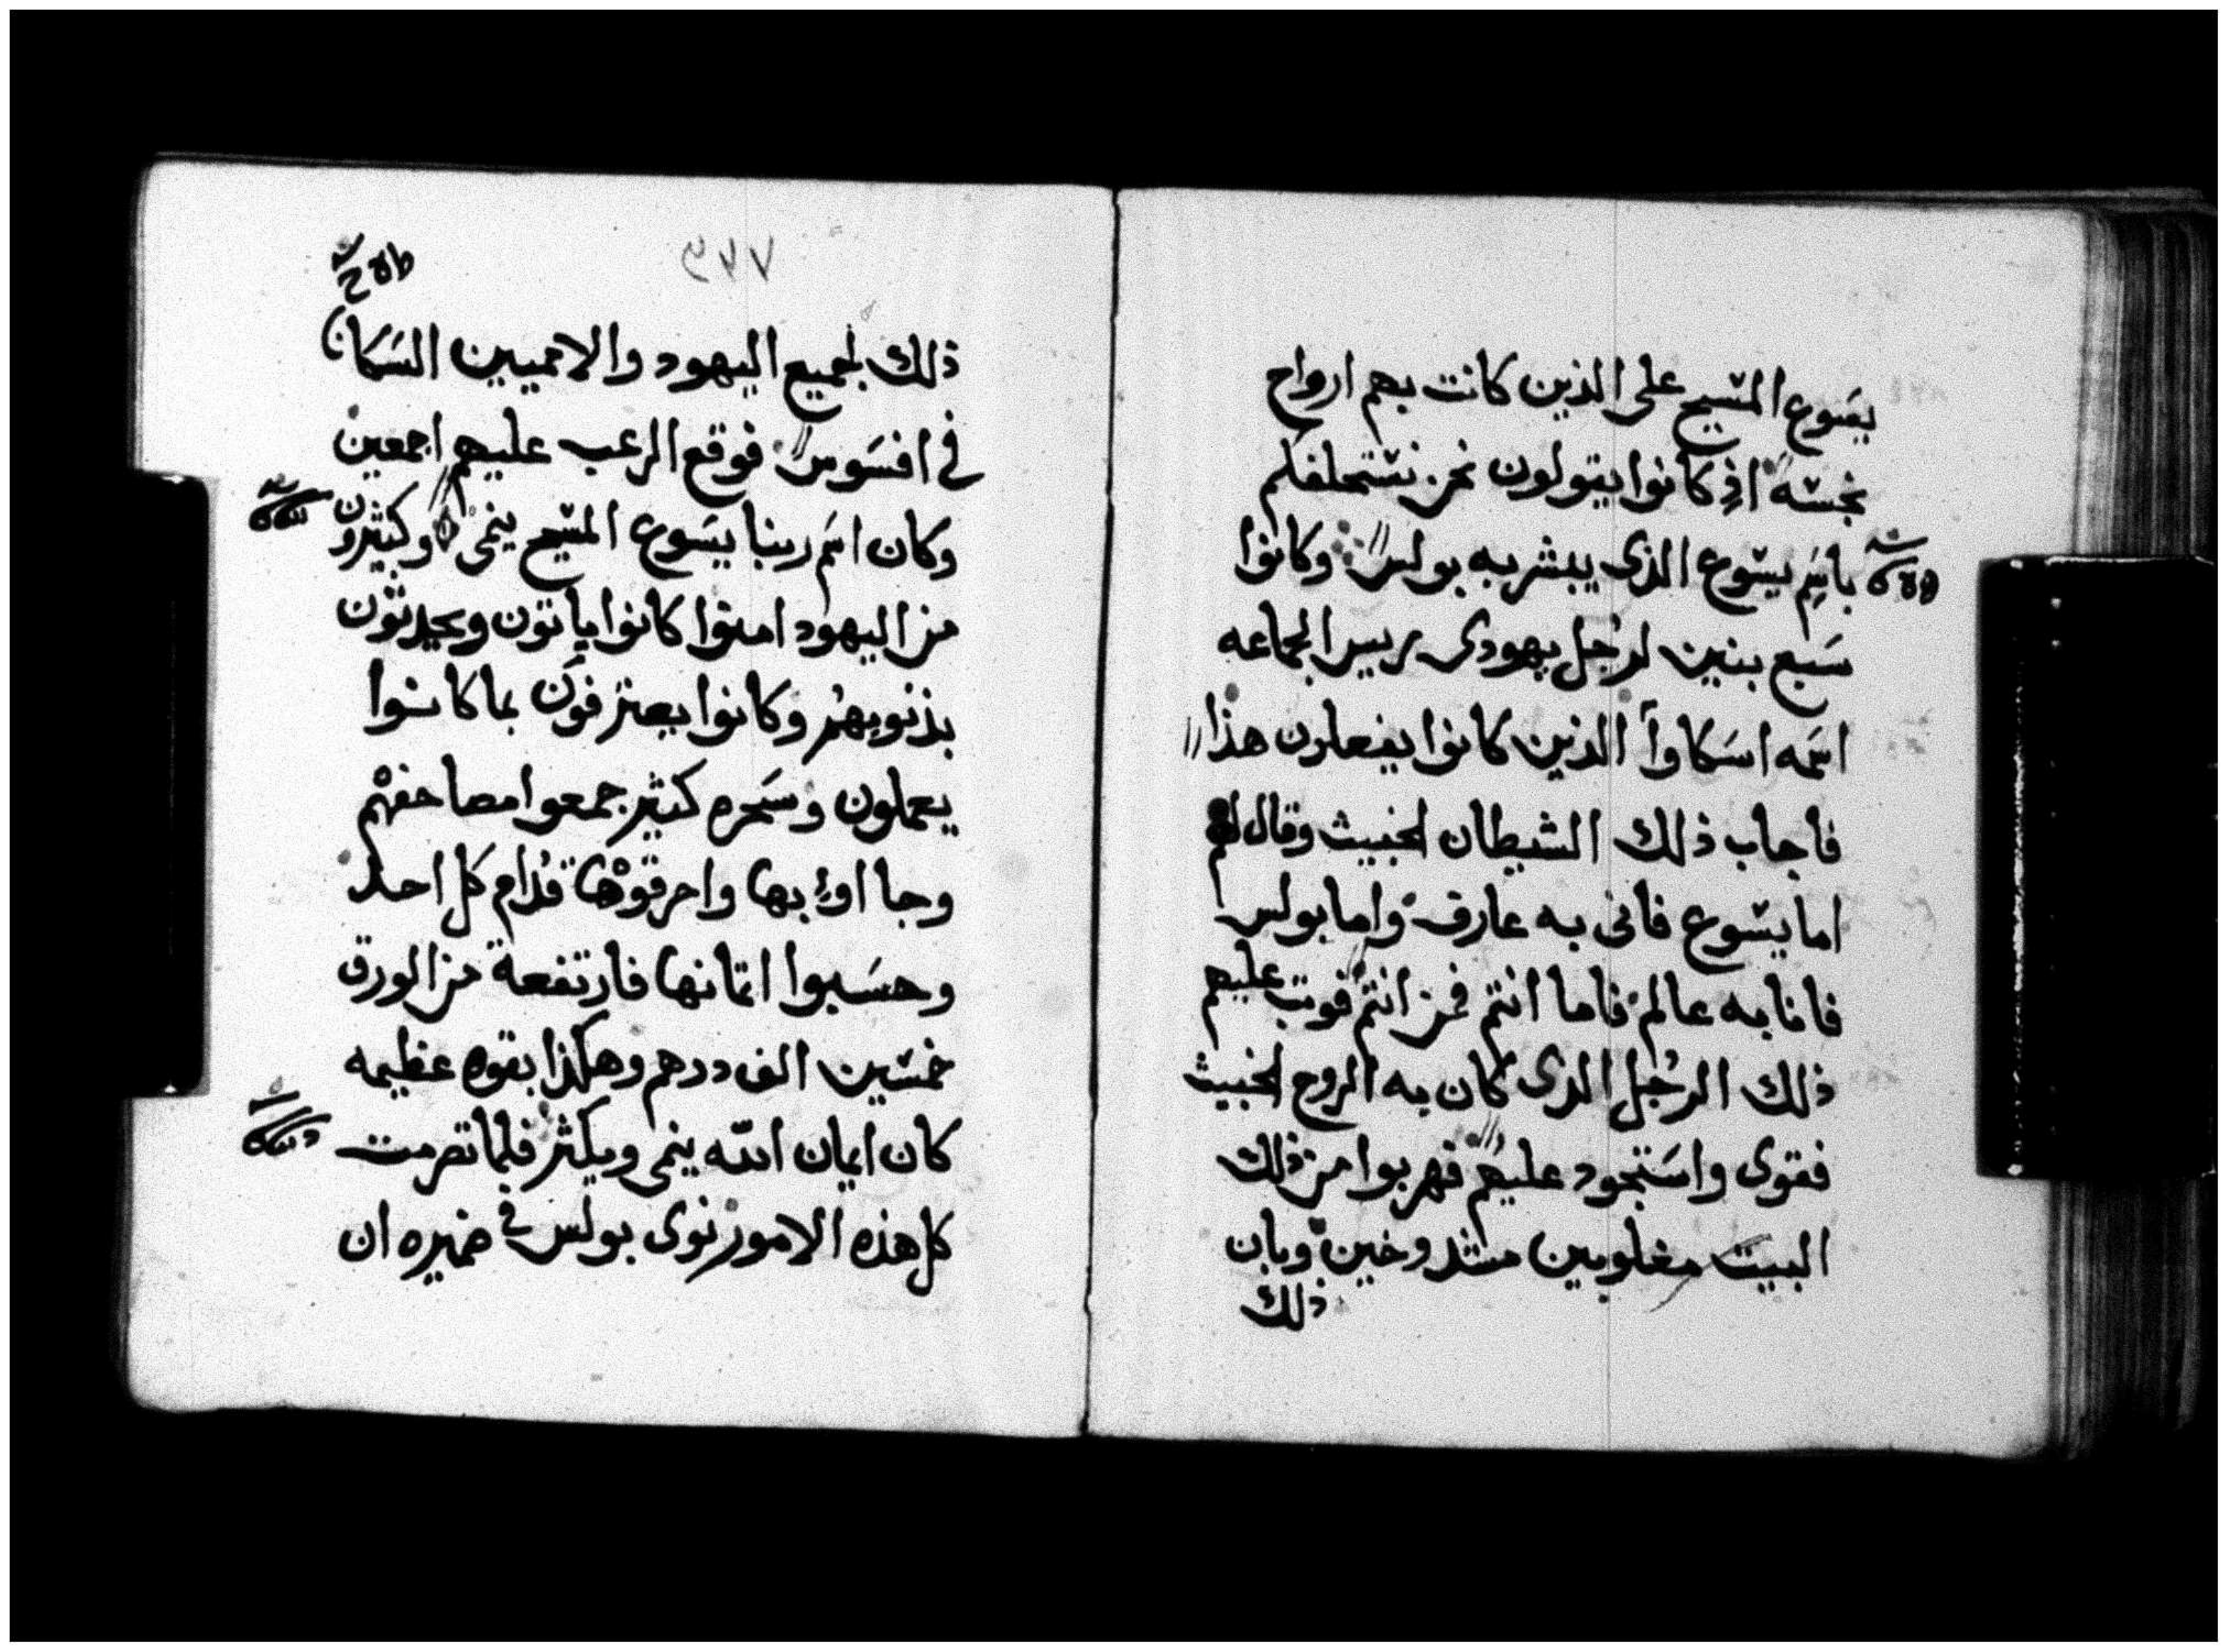 يسوع المسيح على الذين كانت بهم ارواح
نجسه اذ كانوا يقولون نحن نستحلفكم
باسم يسوع الذى يبشر به بولس وكانوا
سبع بنين لرجل يهودى رييس الجماعه
اسمه اسكاوا الذين كانوا يفعلون هذا
فاجاب ذلك الشيطان الخبيث وقال لهم
اما يسوع فانى به عارف واما بولس
فانا به عالم فاما انتم فمن انتم فوثب عليهم
ذلك الرجل الذى كان به الروح الخبيث
فقوى واستحود عليهم فهربوا من ذلك
البيت مغلوبين مشدوخين وبان
ذلك
٩٦٧
ذلك لجميع اليهود والامميين السكان
فى افسوس فوقع الرعب عليهم اجمعين
وكان اسم ربنا يسوع المسيح ينمى وكثيرون
من اليهود امنوا كانوا ياتون ويحدثون
بذنوبهم وكانوا يعترفون بما كانوا
يعملون وسحره كثير جمعوا مصاحفهم
وجااوا بها واحرقوها قدام كل احد
وحسبوا اثمانها فارتفعة من الورق
خمسين الف درهم وهكذا بقوه عظيمه
كان ايمان الله ينمى ويكثر فلما تصرمت
كل هذه الامور نوى بولس فى ضميره ان